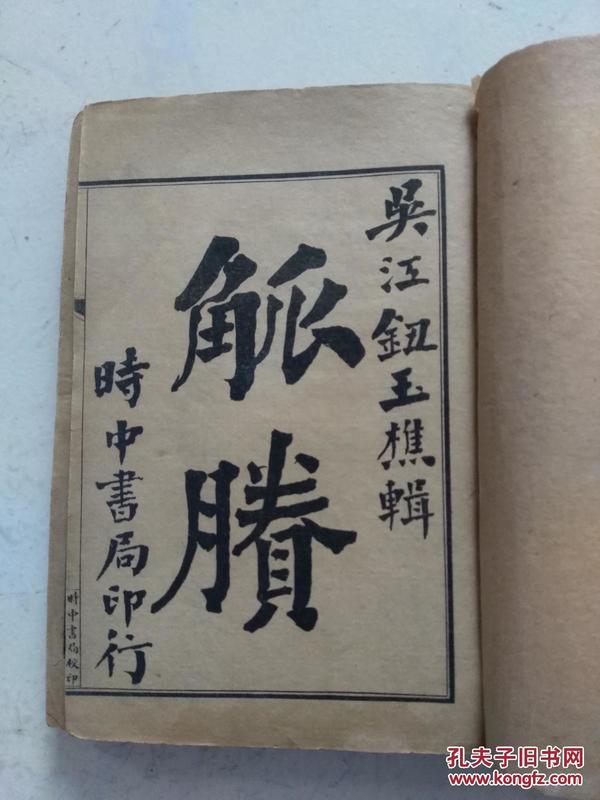 吳江鈕玉樵輯
觚賸
時中書局印行
時中書局校印
孔夫子旧书网
www.kongfz.com